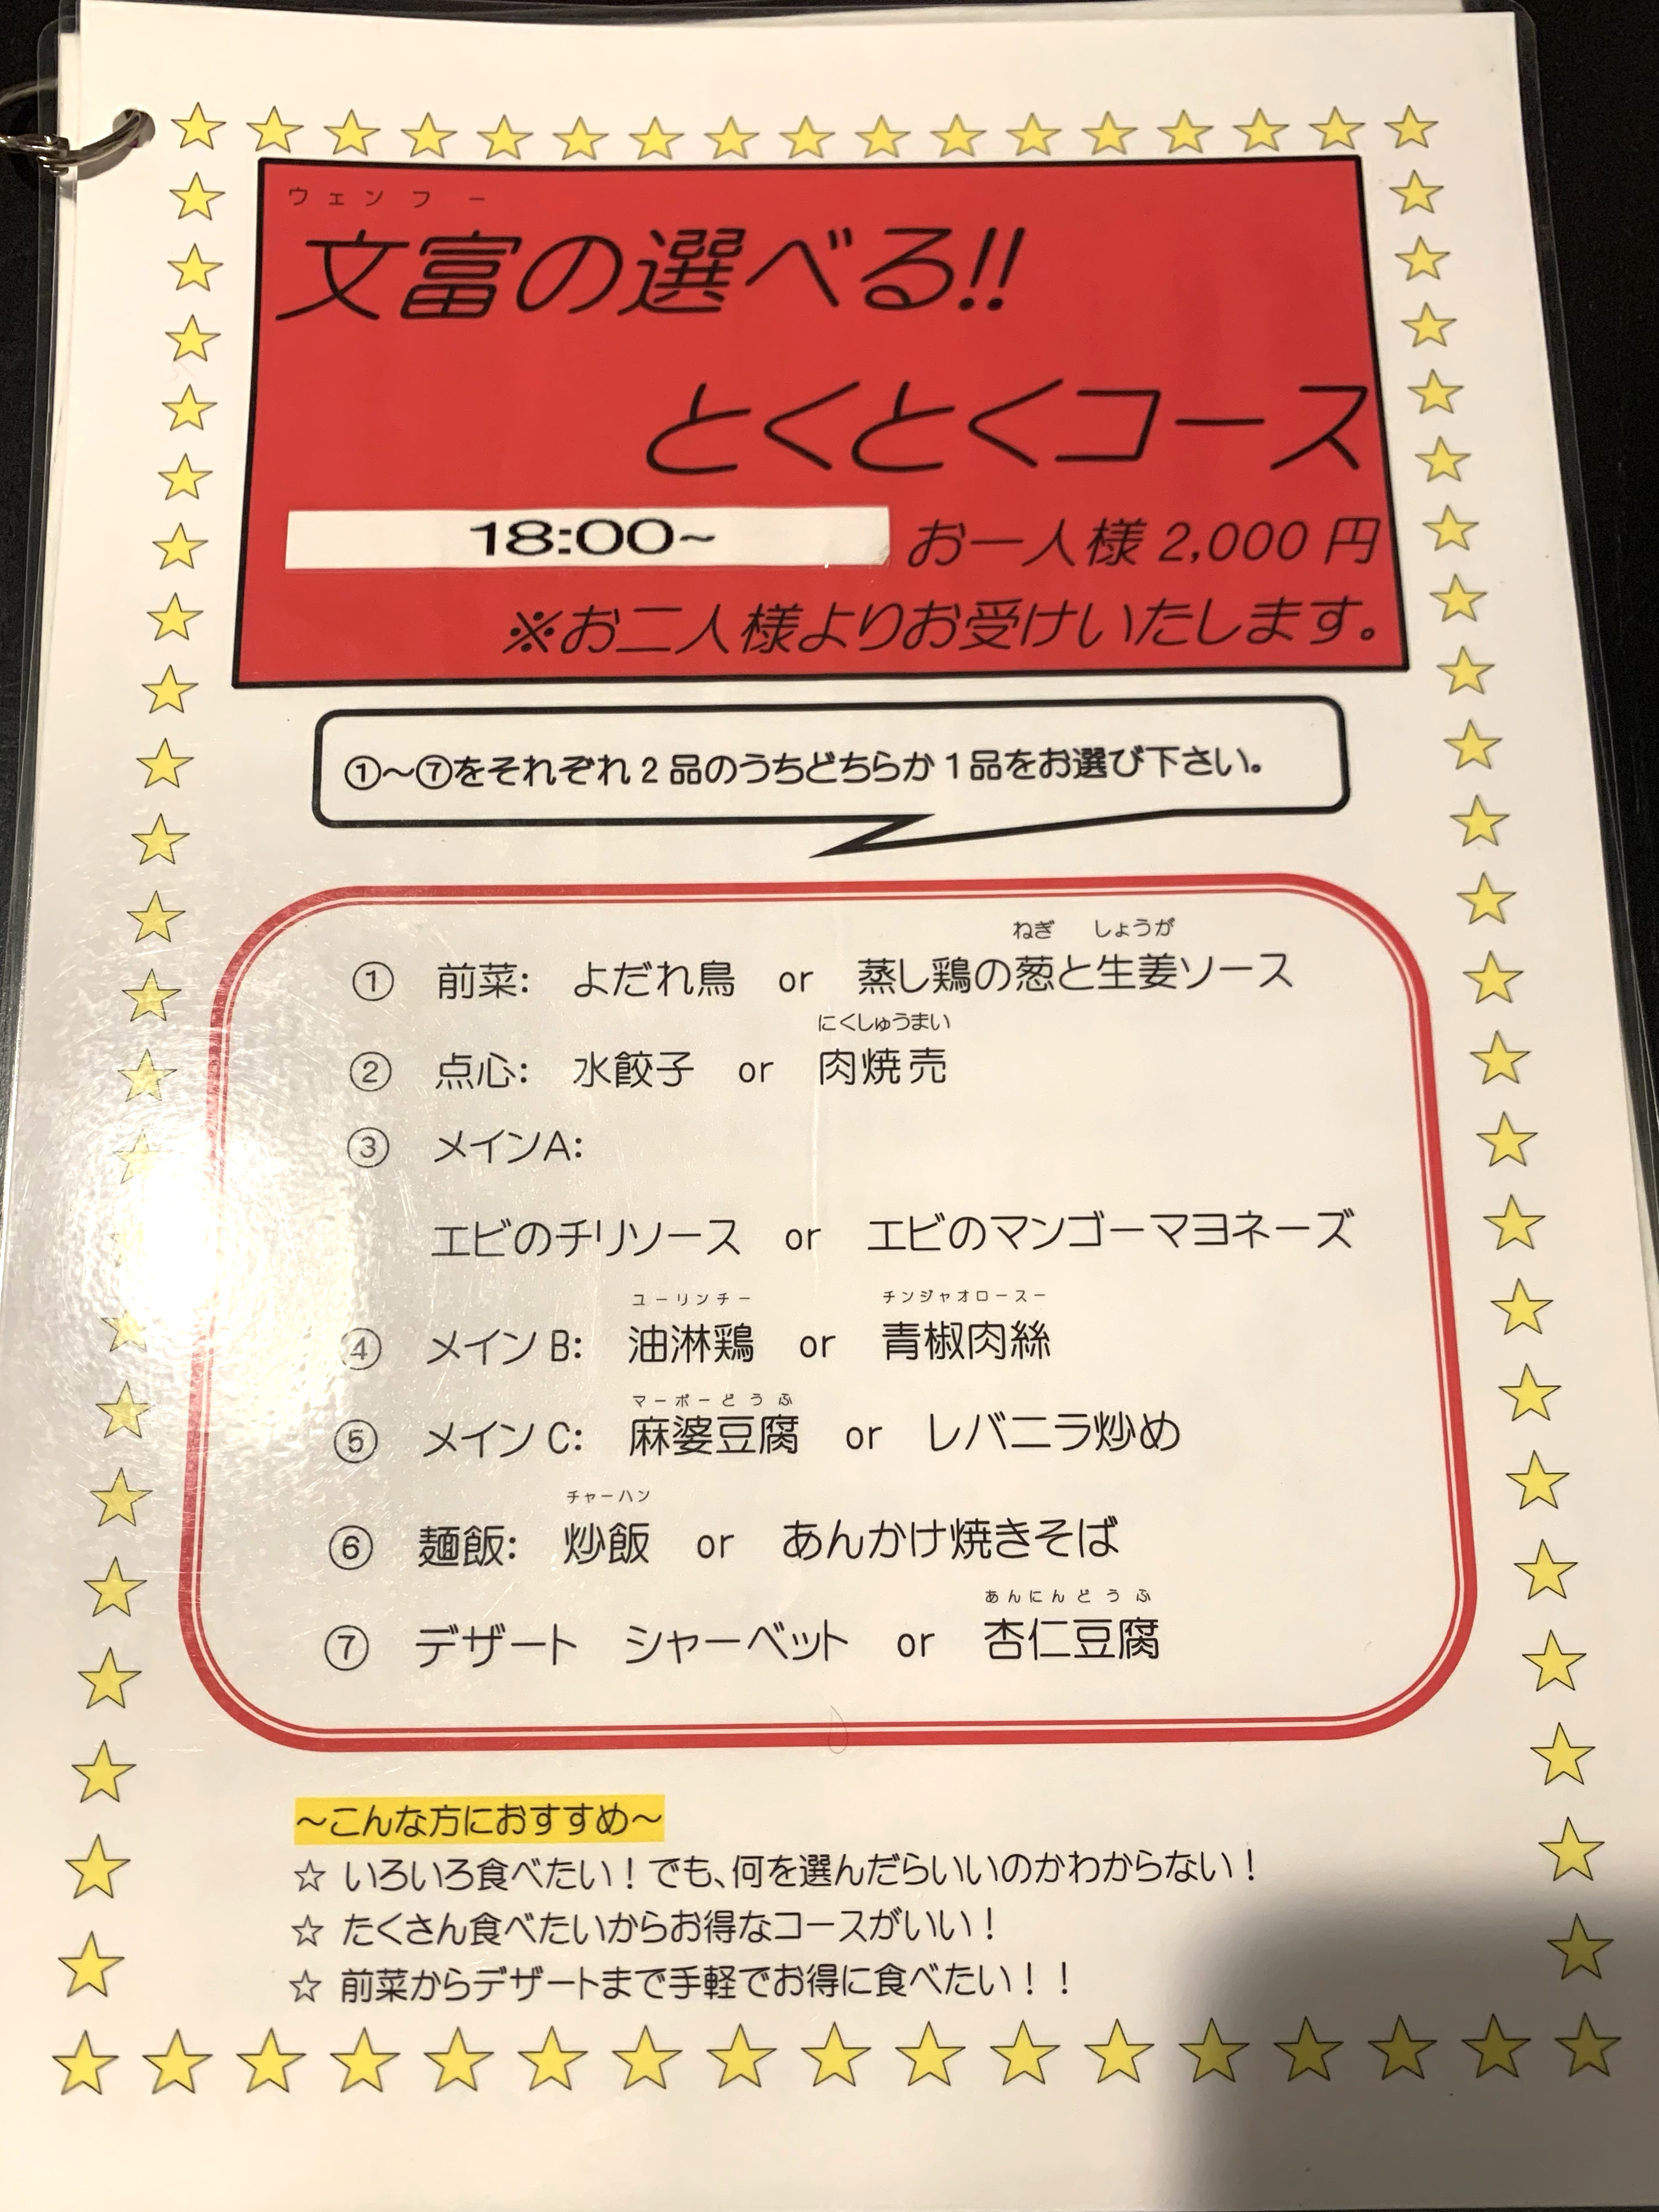 ウェンフー
文富の選べる!!
とくとくコース
18:00~ お一人様2,000円
※お二人様よりお受けいたします。
①～⑦をそれぞれ2品のうちどちらか1品をお選び下さい。
ねぎ しょうが
① 前菜: よだれ鳥 or 蒸し鶏の葱と生姜ソース
にくしゅうまい
② 点心: 水餃子 or 肉焼売
③ メインA:
エビのチリソース or エビのマンゴーマヨネーズ
ユーリンチー チンジャオロースー
④ メインB: 油淋鶏 or 青椒肉絲
マーボーどうふ
⑤ メインC: 麻婆豆腐 or レバニラ炒め
チャーハン
⑥ 麺飯: 炒飯 or あんかけ焼きそば
あんにんどうふ
⑦ デザート シャーベット or 杏仁豆腐
～こんな方におすすめ～
☆ いろいろ食べたい！でも、何を選んだらいいのかわからない！
☆ たくさん食べたいからお得なコースがいい！
☆ 前菜からデザートまで手軽でお得に食べたい！！